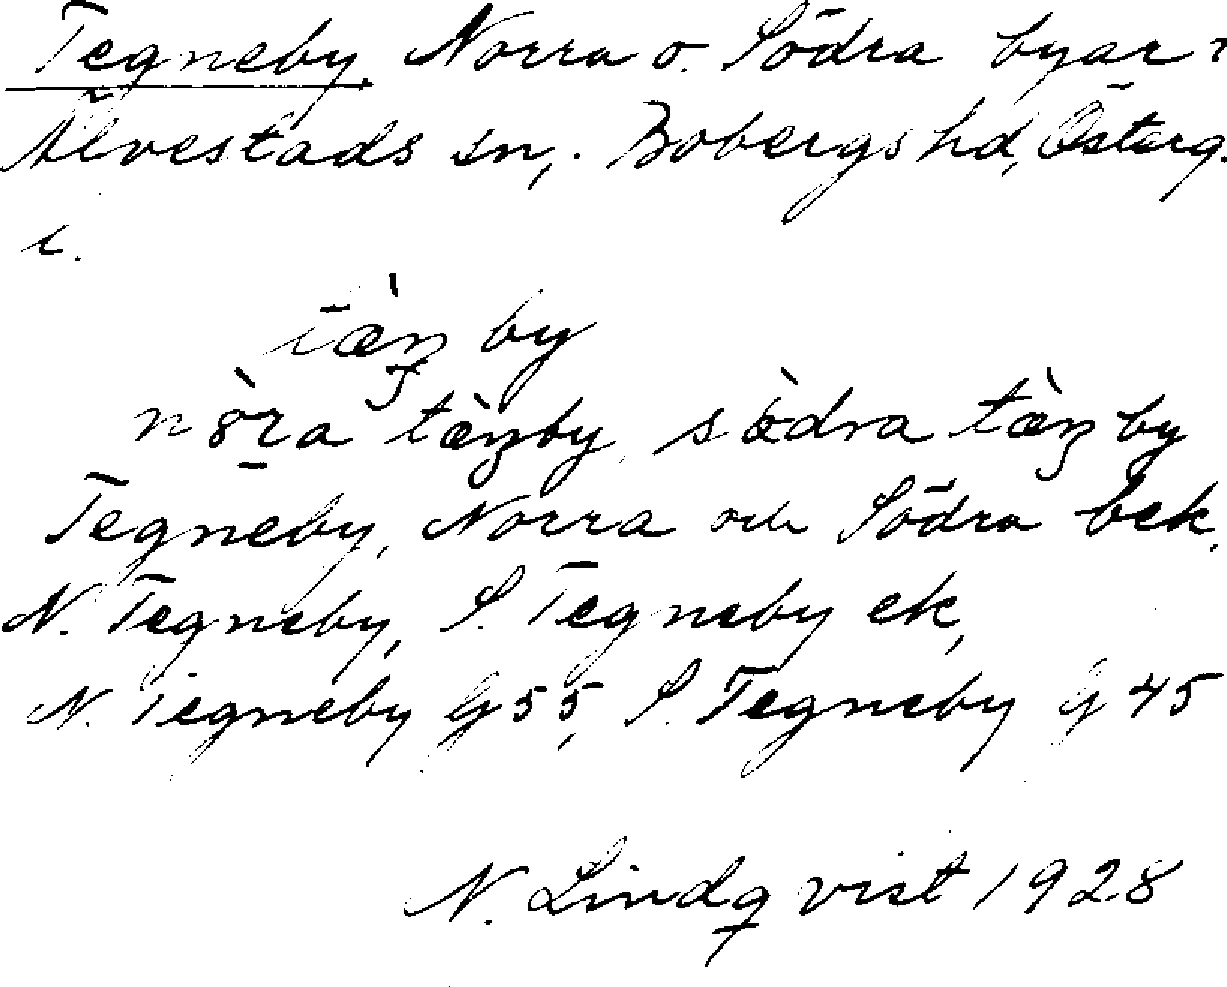 Tegneby, Norra o. Södra byar i
Älvestads sn, Bobergs hd, Österg.
i.
tæŋby
nöra tæŋby, södra tæŋby
Tegneby, Norra och Södra bek.
N. Tegneby, S. Tegneby ek,
N. Tegneby G 55, S. Tegneby G 45
N. Lindqvist 1928